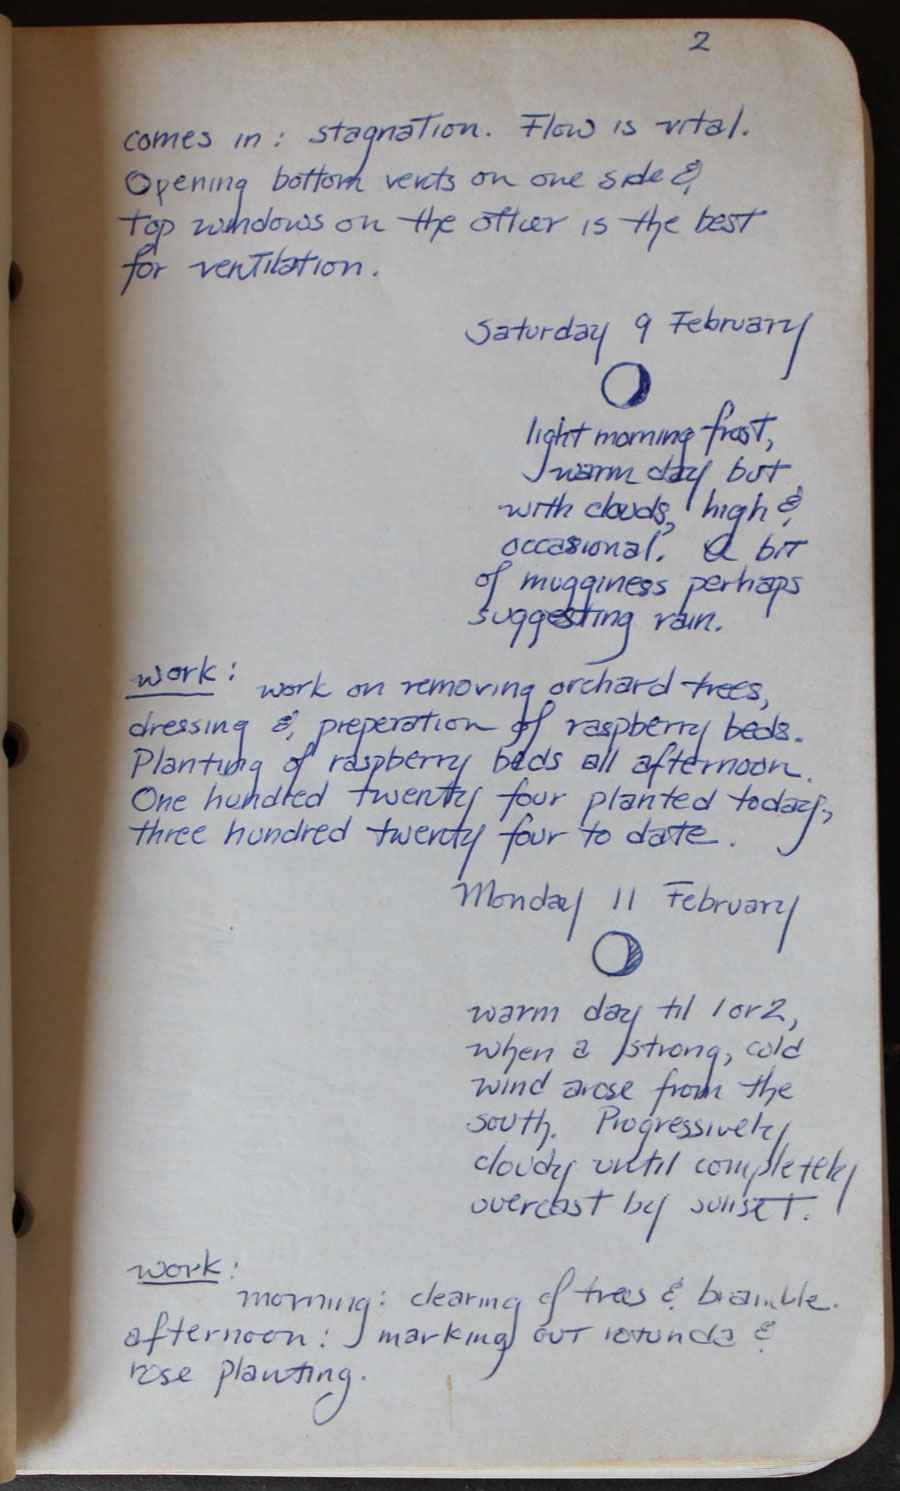 2
comes in: stagnation. Flow is vital.
Opening bottom vents on one side &
top windows on the other is the best
for ventilation.
Saturday 9 February
light morning frost,
warm day but
with clouds, high &
occasional. A bit
of mugginess perhaps
suggesting rain.
work:
work on removing orchard trees,
dressing & preperation of raspberry beds.
Planting of raspberry beds all afternoon.
One hundred twenty four planted today,
three hundred twenty four to date.
Monday 11 February
warm day til 1 or 2,
when a strong, cold
wind arose from the
south. Progressively
cloudy until completely
overcast by sunset.
work:
morning: clearing of trees & bramble.
afternoon: marking out rotunda &
rose planting.